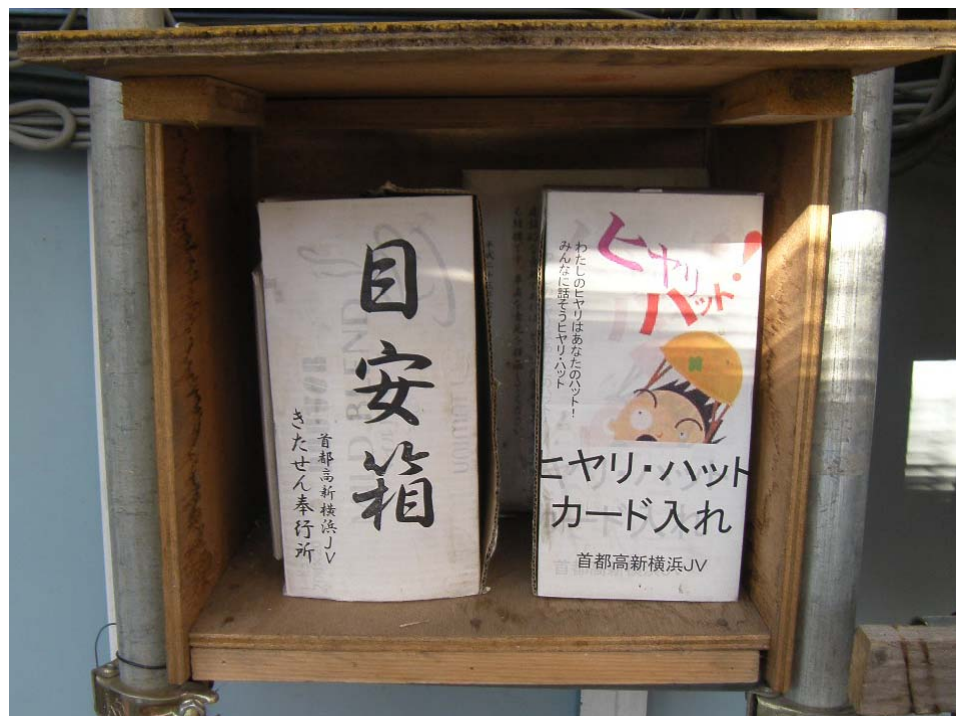 目安箱
首都高新横浜JV
きたせん奉行所
ヒヤリ
ハット!!
わたしのヒヤリはあなたのハット!
みんなに話そうヒヤリ・ハット
ヒヤリ・ハット
カード入れ
首都高新横浜JV